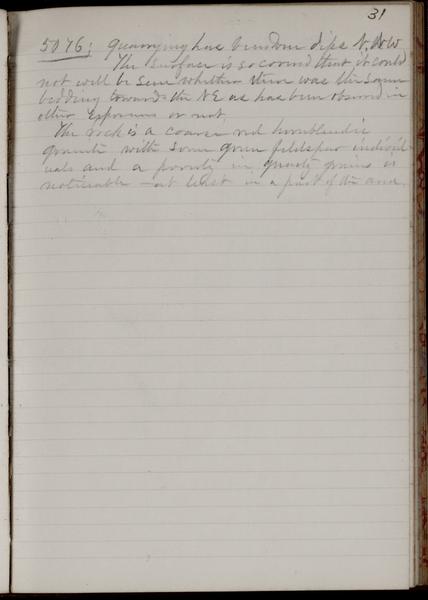 31
5076; Quarrying has been done dips N.W.
The surface is so covered that it could
not well be seen whether there was the same
bedding towards the NE as has been observed in
other exposures or not.
The rock is a coarse red hornblendic
granite with some green feldspar individ
uals and a poverty in quartz grains is
noticeable — at least in a part of the area.